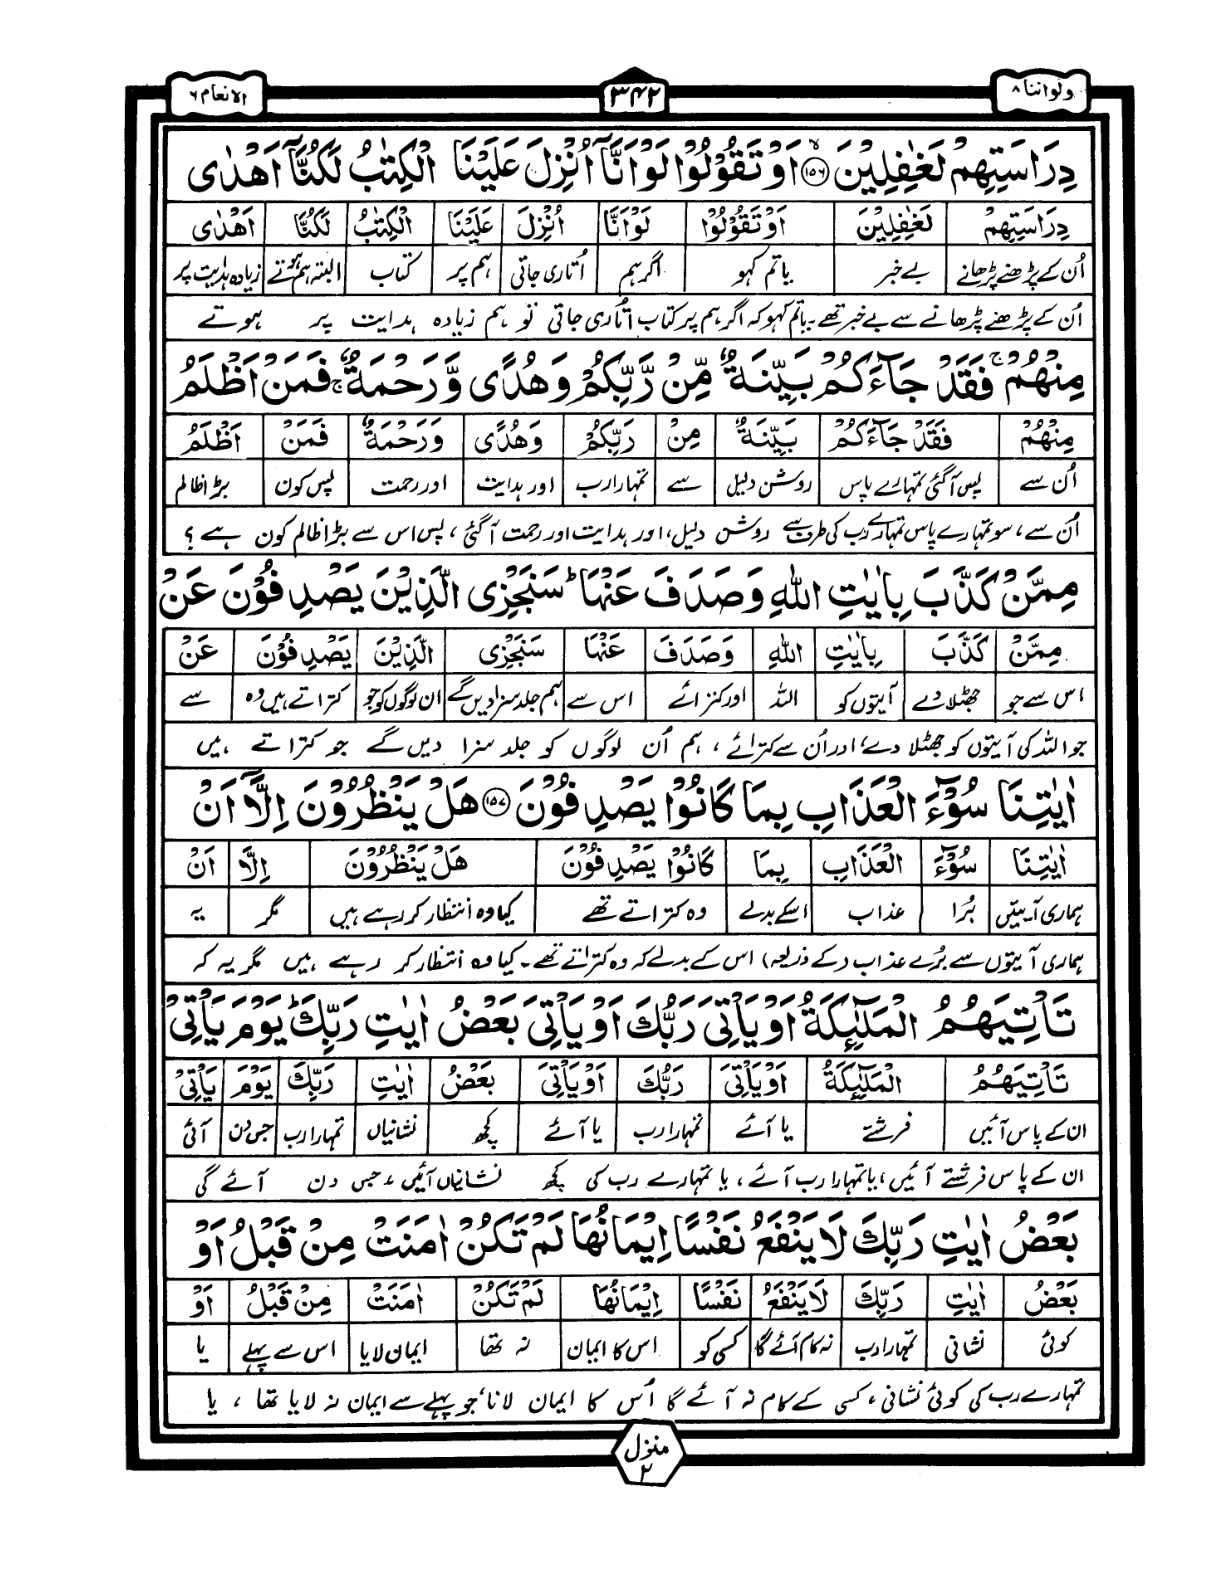 ولواننا ۸
۳۴۲
الانعام ۶
دِرَاسَتِهِمْ لَغٰفِلِيْنَ ۝۱۵۶ اَوْ تَقُوْلُوْا لَوْ اَنَّاۤ اُنْزِلَ عَلَيْنَا الْكِتٰبُ لَكُنَّاۤ اَهْدٰى
دِرَاسَتِهِمْ لَغٰفِلِيْنَ اَوْ تَقُوْلُوْا لَوْ اَنَّا اُنْزِلَ عَلَيْنَا الْكِتٰبُ لَكُنَّا اَهْدٰى
اُن کے پڑھنے پڑھانے بے خبر یا تم کہو اگر ہم اُتاری جاتی ہم پر کتاب البتہ ہم ہوتے زیادہ ہدایت پر
اُن کے پڑھنے پڑھانے سے بے خبر تھے۔ یا تم کہو کہ اگر ہم پر کتاب اتاری جاتی تو ہم زیادہ ہدایت پر ہوتے
مِنْهُمْ ۚ فَقَدْ جَآءَكُمْ بَيِّنَةٌ مِّنْ رَّبِّكُمْ وَهُدًى وَّرَحْمَةٌ ۚ فَمَنْ اَظْلَمُ
مِنْهُمْ فَقَدْ جَآءَكُمْ بَيِّنَةٌ مِنْ رَبِّكُمْ وَهُدًى وَرَحْمَةٌ فَمَنْ اَظْلَمُ
اُن سے پس آگئی تمہارے پاس روشن دلیل سے تمہارا رب اور ہدایت اور رحمت پس کون بڑا ظالم
اُن سے، سو تمہارے پاس تمہارے رب کی طرف سے روشن دلیل، اور ہدایت اور رحمت آ گئی، پس اس سے بڑا ظالم کون ہے؟
مِمَّنْ كَذَّبَ بِاٰيٰتِ اللّٰهِ وَصَدَفَ عَنْهَا ؕ سَنَجْزِى الَّذِيْنَ يَصْدِفُوْنَ عَنْ
مِمَّنْ كَذَّبَ بِاٰيٰتِ اللّٰهِ وَصَدَفَ عَنْهَا سَنَجْزِى الَّذِيْنَ يَصْدِفُوْنَ عَنْ
اس سے جو جھٹلا دے آیتوں کو اللہ اور کترائے اس سے ہم جلد سزا دیں گے ان لوگوں کو جو کتراتے ہیں وہ سے
جو اللہ کی آیتوں کو جھٹلا دے، اور اُن سے کترائے، ہم اُن لوگوں کو جلد سزا دیں گے جو کتراتے ہیں
اٰيٰتِنَا سُوْٓءَ الْعَذَابِ بِمَا كَانُوْا يَصْدِفُوْنَ ۝۱۵۷ هَلْ يَنْظُرُوْنَ اِلَّاۤ اَنْ
اٰيٰتِنَا سُوْٓءَ الْعَذَابِ بِمَا كَانُوْا يَصْدِفُوْنَ هَلْ يَنْظُرُوْنَ اِلَّا اَنْ
ہماری آیتیں بُرا عذاب اسکے بدلے وہ کتراتے تھے کیا وہ انتظار کر رہے ہیں مگر یہ
ہماری آیتوں سے بُرے عذاب (کے ذریعہ) اس کے بدلے کہ وہ کتراتے تھے۔ کیا وہ انتظار کر رہے ہیں مگر یہ کہ
تَاْتِيَهُمُ الْمَلٰٓئِكَةُ اَوْ يَاْتِىَ رَبُّكَ اَوْ يَاْتِىَ بَعْضُ اٰيٰتِ رَبِّكَ ؕ يَوْمَ يَاْتِىْ
تَاْتِيَهُمُ الْمَلٰٓئِكَةُ اَوْ يَاْتِىَ رَبُّكَ اَوْ يَاْتِىَ بَعْضُ اٰيٰتِ رَبِّكَ يَوْمَ يَاْتِىْ
ان کے پاس آئیں فرشتے یا آئے تمہارا رب یا آئے کچھ نشانیاں تمہارا رب جس دن آئی
ان کے پاس فرشتے آئیں، یا تمہارا رب آئے، یا تمہارے رب کی کچھ نشانیاں آئیں، جس دن آئے گی
بَعْضُ اٰيٰتِ رَبِّكَ لَا يَنْفَعُ نَفْسًا اِيْمَانُهَا لَمْ تَكُنْ اٰمَنَتْ مِنْ قَبْلُ اَوْ
بَعْضُ اٰيٰتِ رَبِّكَ لَا يَنْفَعُ نَفْسًا اِيْمَانُهَا لَمْ تَكُنْ اٰمَنَتْ مِنْ قَبْلُ اَوْ
کوئی نشانی تمہارا رب نہ کام آئے گا کسی کو اس کا ایمان نہ تھا ایمان لایا اس سے پہلے یا
تمہارے رب کی کوئی نشانی، کسی کے کام نہ آئے گا اُس کا ایمان لانا، جو پہلے سے ایمان نہ لایا تھا، یا
منزل ۲